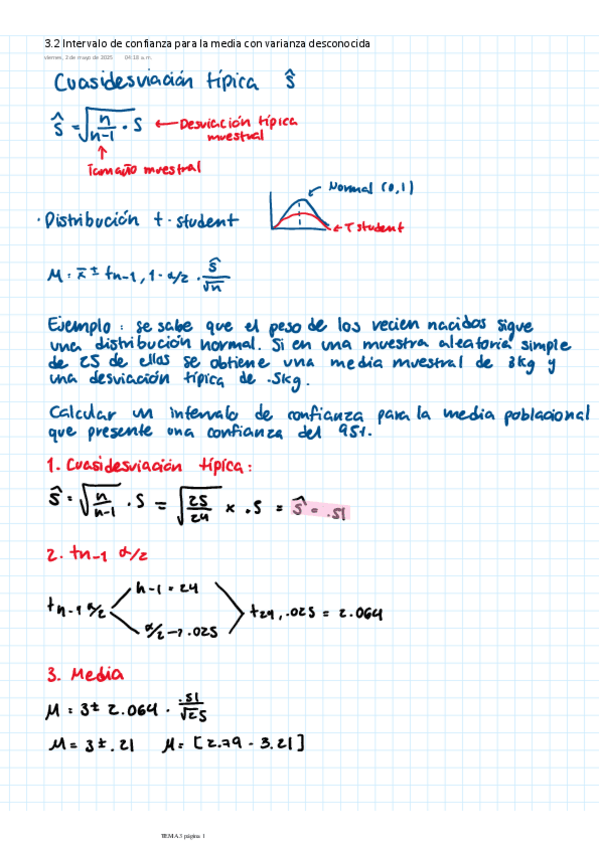 3.2 Intervalo de confianza para la media con varianza desconocida
viernes, 2 de mayo de 2025 04:18 a. m.
Cuasidesviación típica ŝ
ŝ = √(n/n-1) · S ← Desviación típica muestral
↑
Tamaño muestral
Normal (0,1)
· Distribución t · student
← T student
M = x̄ ± tn-1, 1-α/2 · ŝ/√n
Ejemplo: se sabe que el peso de los recien nacidos sigue
una distribución normal. Si en una muestra aleatoria simple
de 25 de ellos se obtiene una media muestral de 3kg y
una desviación típica de .5kg.
Calcular un intervalo de confianza para la media poblacional
que presente una confianza del 95%.
1. Cuasidesviación típica:
ŝ = √(n/n-1) · S = √(25/24) x .5 = ŝ = .51
2. tn-1 α/2
n-1 = 24
tn-1 α/2
t24, .025 = 2.064
α/2 → .025
3. Media
M = 3 ± 2.064 · .51/√25
M = 3 ± .21 M = [2.79 - 3.21]
TEMA 3 página 1